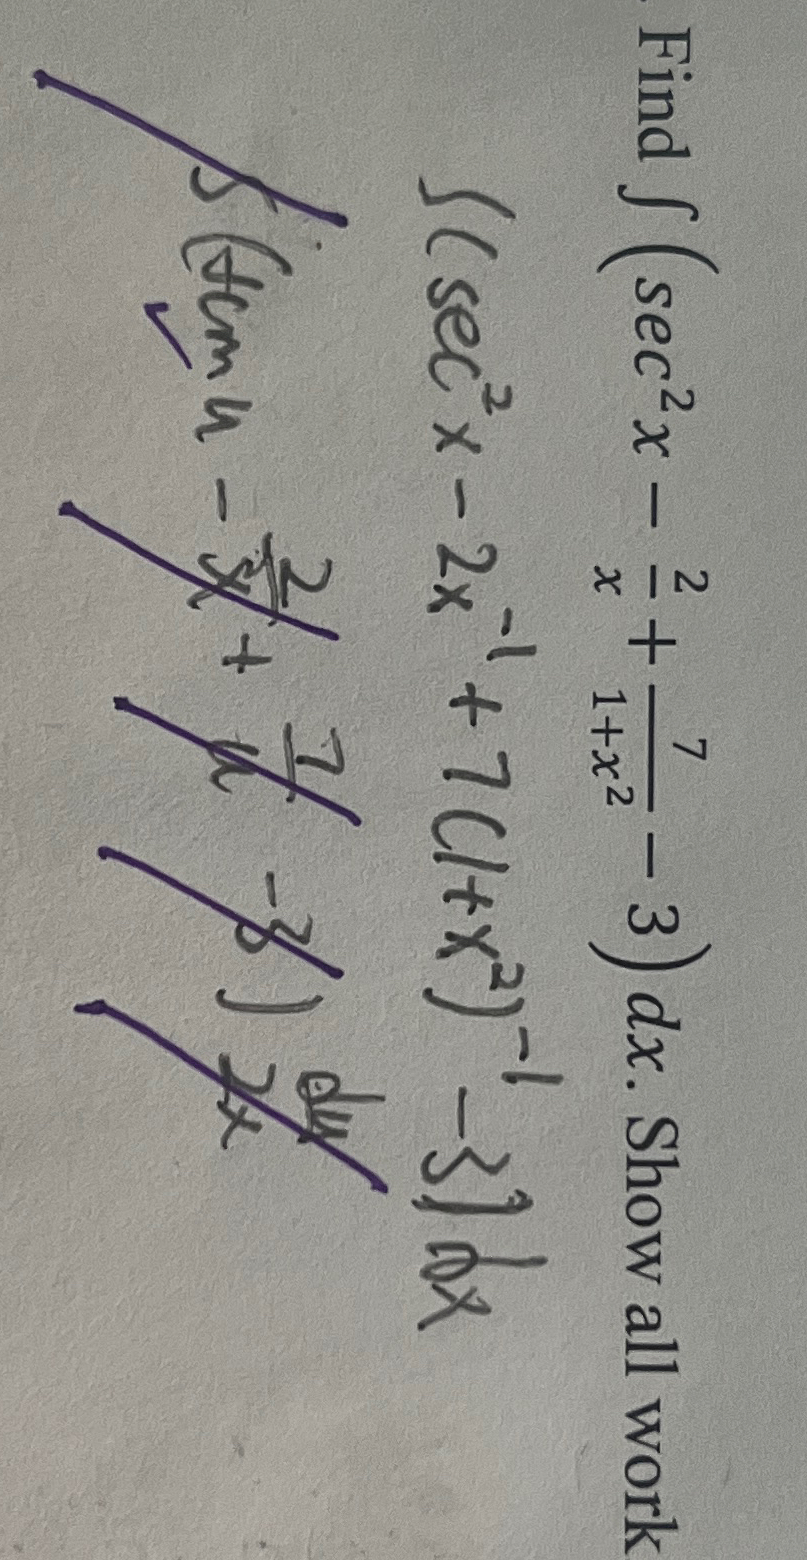 . Find ∫(sec²x − 2/x + 7/(1+x²) − 3) dx. Show all work
∫(sec²x − 2x⁻¹ + 7(1+x²)⁻¹ − 3) dx
∫( u − 2/x + 7/u − 3) du/2x